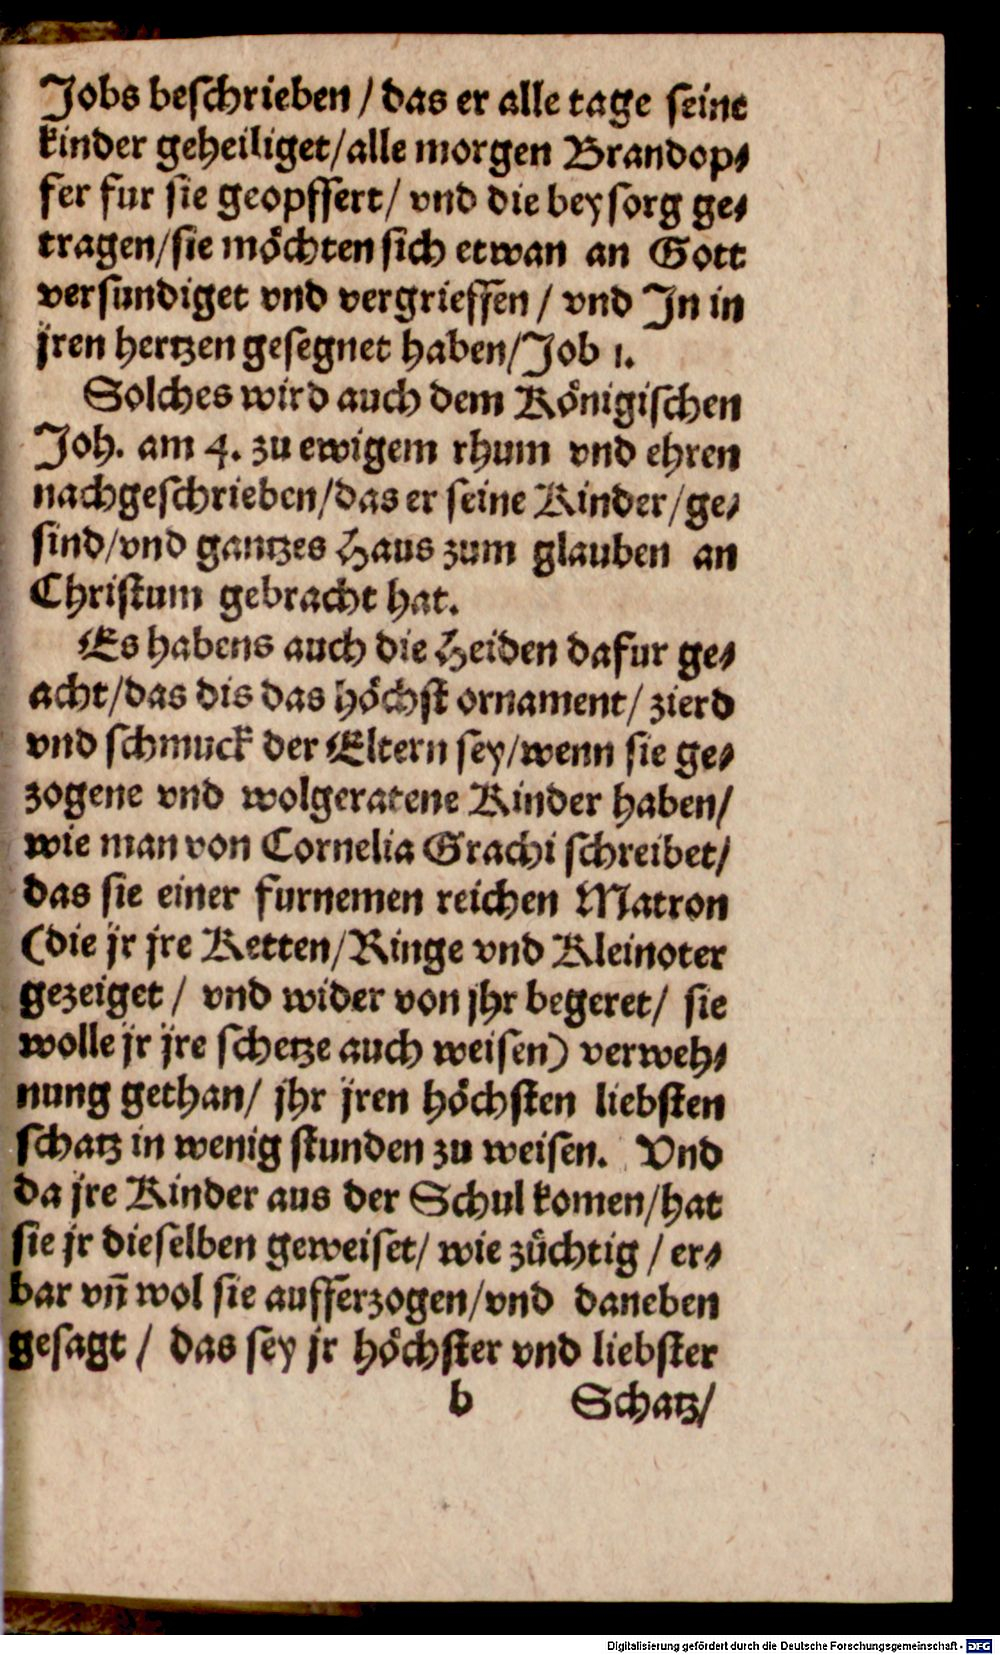 Jobs beschrieben / das er alle tage seine
kinder geheiliget/alle morgen Brandop⸗
fer fur sie geopffert/ vnd die beysorg ge⸗
tragen/sie möchten sich etwan an Gott
versundiget vnd vergrieffen / vnd Jn in
jren hertzen gesegnet haben/Job 1.
Solches wird auch dem Königischen
Joh. am 4. zu ewigem rhum vnd ehren
nachgeschrieben/das er seine Kinder/ge⸗
sind/vnd gantzes Haus zum glauben an
Christum gebracht hat.
Es habens auch die Heiden dafur ge⸗
acht/das dis das höchst ornament/ zierd
vnd schmuck der Eltern sey/wenn sie ge⸗
zogene vnd wolgeratene Kinder haben/
wie man von Cornelia Grachi schreibet/
das sie einer furnemen reichen Matron
(die jr jre Ketten/Ringe vnd Kleinoter
gezeiget / vnd wider von jhr begeret/ sie
wolle jr jre schetze auch weisen) verweh⸗
nung gethan/ jhr jren höchsten liebsten
schatz in wenig stunden zu weisen. Vnd
da jre Kinder aus der Schul komen/hat
sie jr dieselben geweiset/ wie züchtig / er⸗
bar vñ wol sie aufferzogen/vnd daneben
gesagt / das sey jr höchster vnd liebster
b Schatz/
Digitalisierung gefördert durch die Deutsche Forschungsgemeinschaft - DFG